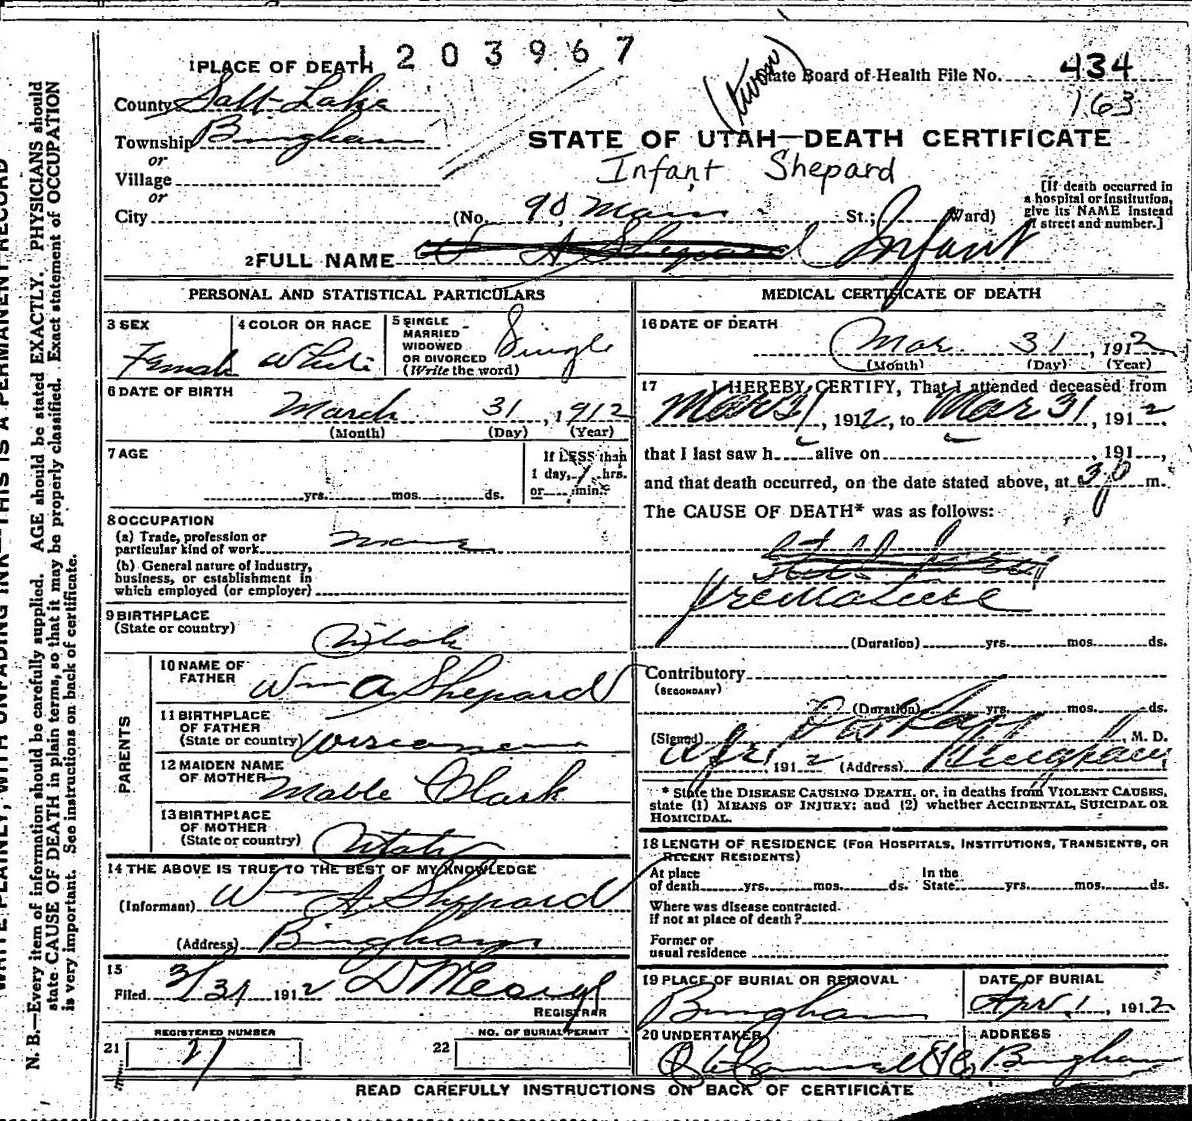 1203967
1 PLACE OF DEATH
(twon)
State Board of Health File No. 434
163
County Salt Lake
Township Bingham
or
Village
or
City
STATE OF UTAH—DEATH CERTIFICATE
Infant Shepard
(No. 90 Main St.; Ward)
[If death occurred in a hospital or institution, give its NAME instead of street and number.]
2 FULL NAME A Shepard Infant
PERSONAL AND STATISTICAL PARTICULARS
3 SEX
Female
4 COLOR OR RACE
White
5 SINGLE
MARRIED
WIDOWED
OR DIVORCED
(Write the word)
Single
6 DATE OF BIRTH
March 31, 1912
(Month) (Day) (Year)
7 AGE
yrs. mos. ds.
If LESS than
1 day, hrs.
or min.
8 OCCUPATION
(a) Trade, profession or
particular kind of work
(b) General nature of industry,
business, or establishment in
which employed (or employer)
9 BIRTHPLACE
(State or country)
Utah
PARENTS
10 NAME OF
FATHER
Wm A Shepard
11 BIRTHPLACE
OF FATHER
(State or country) Wisconsin
12 MAIDEN NAME
OF MOTHER
Mable Clark
13 BIRTHPLACE
OF MOTHER
(State or country) Utah
14 THE ABOVE IS TRUE TO THE BEST OF MY KNOWLEDGE
(Informant) Wm A. Shepard
(Address) Bingham
15
Filed 3/31 1912
REGISTRAR
REGISTERED NUMBER
21 27
NO. OF BURIAL PERMIT
22
MEDICAL CERTIFICATE OF DEATH
16 DATE OF DEATH
Mar. 31, 1912
(Month) (Day) (Year)
17 I HEREBY CERTIFY, That I attended deceased from
Mar 31, 1912, to Mar 31, 1912,
that I last saw h alive on , 191 ,
and that death occurred, on the date stated above, at m.
The CAUSE OF DEATH* was as follows:
Premature
(Duration) yrs. mos. ds.
Contributory
(SECONDARY)
(Duration) yrs. mos. ds.
(Signed) , M. D.
Apr 1, 1912 (Address) Bingham
* State the DISEASE CAUSING DEATH, or, in deaths from VIOLENT CAUSES,
state (1) MEANS OF INJURY; and (2) whether ACCIDENTAL, SUICIDAL OR
HOMICIDAL.
18 LENGTH OF RESIDENCE (FOR HOSPITALS, INSTITUTIONS, TRANSIENTS, OR
RECENT RESIDENTS)
At place
of death yrs. mos. ds.
In the
State yrs. mos. ds.
Where was disease contracted.
if not at place of death?
Former or
usual residence
19 PLACE OF BURIAL OR REMOVAL
Bingham
DATE OF BURIAL
Apr. 1, 1912
20 UNDERTAKER
ADDRESS
Bingham
READ CAREFULLY INSTRUCTIONS ON BACK OF CERTIFICATE
WRITE PLAINLY, WITH UNFADING INK—THIS IS A PERMANENT RECORD
N. B.—Every item of information should be carefully supplied. AGE should be stated EXACTLY. PHYSICIANS should
state CAUSE OF DEATH in plain terms, so that it may be properly classified. Exact statement of OCCUPATION
is very important. See instructions on back of certificate.